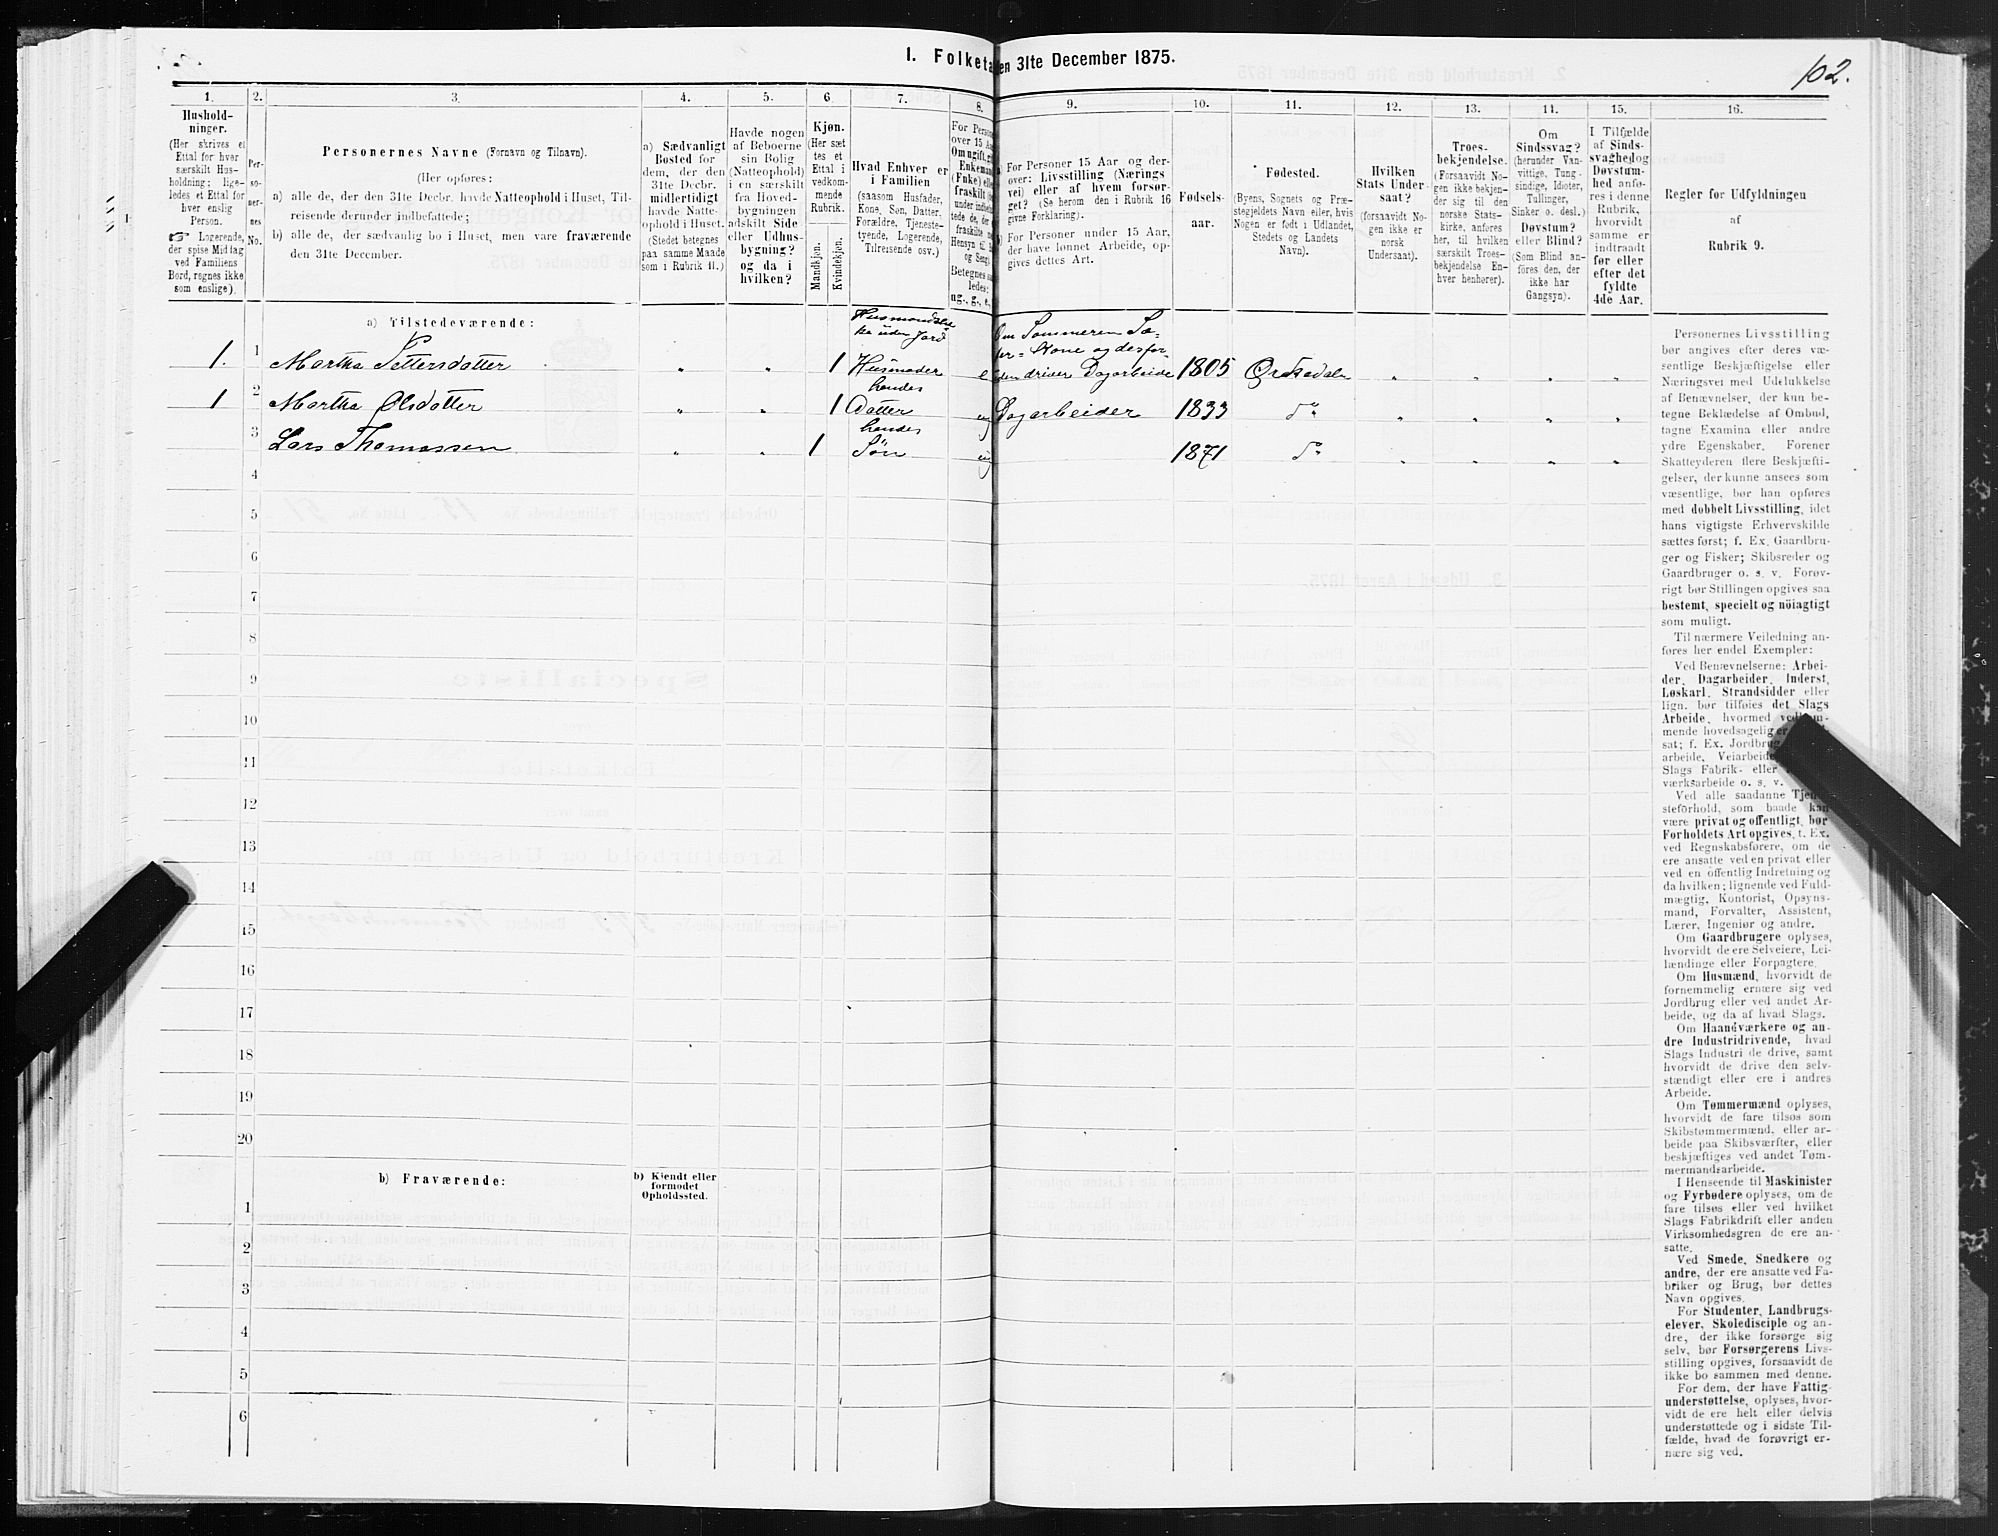 I. Folketa en 31te December 1875.
102.
1. 2. 3. 4. 5. 6. 7. 8. 9. 10. 11. 12. 13. 14. 15. 16.
Hushold-
ninger.
(Her skrives et
Ettal for hver
særskilt Hus-
holdning; lige-
ledes et Ettal for
hver enslig
Person.
☞ Logerende,
der spise Middag
ved Familiens
Bord, regnes ikke
som enslige).
Per-
so-
ner-
nes
No.
Personernes Navne (Fornavn og Tilnavn).
(Her opføres:
a) alle de, der den 31te Decbr. havde Natteophold i Huset, Til-
reisende derunder indbefattede;
b) alle de, der sædvanlig bo i Huset, men vare fraværende
den 31te December.
a) Sædvanligt
Bosted for
dem, der den
31te Decbr.
midlertidigt
havde Natte-
ophold i Huset.
(Stedet betegnes
paa samme Maade
som i Rubrik 11.)
Havde nogen
af Beboerne
sin Bolig
(Natteophold)
i en særskilt
fra Hoved-
bygningen
adskilt Side-
eller Udhus-
bygning?
og da i
hvilken?
Kjøn.
(Her sæt
tes et
Ettal i
vedkom-
mende
Rubrik.
Mandkjøn.
Kvindekjøn.
Hvad Enhver er
i Familien
(saasom Husfader,
Kone, Søn, Datter,
Forældre, Tjeneste-
tyende, Logerende,
Tilreisende osv.)
For Person
over 15 Aa
Om ugift, gi
Enkeman
(Enke) elle
fraskilt
under indbe
tede de, de
fraskilte
Hensyn til
og Seng
Betegnes sa
ledes:
ug., g., e.,
a) For Personer 15 Aar og der-
over: Livsstilling (Nærings
vei) eller af hvem forsør-
get? (Se herom den i Rubrik 16
givne Forklaring).
b) For Personer under 15 Aar,
der have lønnet Arbeide, op-
gives dettes Art.
Fødsels-
aar.
Fødested.
(Byens, Sognets og Præ-
stegjeldets Navn eller, hvis
Nogen er født i Udlandet,
Stedets og Landets
Navn).
Hvilken
Stats Under-
saat?
(forsaavidt No-
gen ikke er
norsk
Undersaat).
Troes-
bekjendelse.
(Forsaavidt No-
gen ikke bekjen-
der sig til den
norske Stats-
kirke, anføres
her, til hvilken
særskilt Troes-
bekjendelse En-
hver henhører).
Om
Sindssvag?
(herunder Van-
vittige, Tung-
sindige, Idioter,
Tullinger,
Sinker o. desl.)
Døvstum?
eller Blind?
(Som Blind an-
føres den, der
ikke har
Gangsyn).
I Tilfælde
af Sinds-
svaghed og
Døvstum-
hed anfø-
res i denne
Rubrik,
hvorvidt
samme er
indtraadt
før eller
efter det
fyldte
4de Aar.
Regler for Udfyldningen
af
Rubrik 9.
a) Tilstedeværende:
1. 1 Martha Pettersdatter „ „ 1 Husmoder e den driver Dagarbeide 1805 Orkedalen „ „ „ „
1 2 Martha Olsdatter „ „ 1 hendes Datter ug Dagarbeider 1833 do „ „ „ „
3 Lars Thomassen „ „ 1 hendes Søn ug 1871 do „ „ „ „
4
5
6
7
8
9
10
11
12
13
14
15
16
17
18
19
20
b) Fraværende:
b) Kjendt eller
formodet
Opholdssted.
1
2
3
4
5
6
Personernes Livsstilling
bør angives efter deres væ-
sentlige Beskjæftigelse eller
Næringsvei med Udelukkelse
af Benævnelser, der kun be-
tegne Beklædelse af Ombud,
tagne Examina eller andre
ydre Egenskaber. Forener
Skatteyderen flere Beskjæfti-
gelser, der kunne ansees som
væsentlige, bør han opføres
med dobbelt Livsstilling, idet
hans vigtigste Erhvervskilde
sættes først; f. Ex. Gaardbru-
ger og Fisker; Skibsreder og
Gaardbruger o. s. v. Forøv-
rigt bør Stillingen opgives saa
bestemt, specielt og nöiagtigt
som muligt.
Til nærmere Veiledning an-
føres her endel Exempler:
Ved Benævnelserne: Arbei-
der, Dagarbeider, Inderst,
Løskarl, Strandsidder eller
lign. bør tilføies det Slags
Arbeide, hvormed vedkom-
mende hovedsagelig er
sat; f. Ex. Jordbrug
arbeide, Veiarbeide
Slags Fabrik- eller
værksarbeide o. s. v.
Ved alle saadanne Tjene
steforhold, som baade kan
være privat og offentligt, bør
Forholdets Art opgives, t. Ex.
ved Regnskabsførere, om de
ere ansatte ved en privat eller
ved en offentlig Indretning og
da hvilken; lignende ved Fuld-
mægtig, Kontorist, Opsyns-
mand, Forvalter, Assistent,
Lærer, Ingeniør og andre.
Om Gaardbrugere oplyses,
hvorvidt de ere Selveiere, Lei-
lændinge eller Forpagtere.
Om Husmænd, hvorvidt de
fornemmelig ernære sig ved
Jordbrug eller ved andet Ar-
beide, og da af hvad Slags.
Om Haandværkere og an-
dre Industridrivende, hvad
Slags Industri de drive, samt
hvorvidt de drive den selv-
stændigt eller ere i andres
Arbeide.
Om Tømmermænd oplyses,
hvorvidt de fare tilsøs som
Skibstømmermænd, eller ar-
beide paa Skibsværfter, eller
beskjæftiges ved andet Tøm-
mermandsarbeide.
I Henseende til Maskinister
og Fyrbødere oplyses, om de
fare tilsøs eller ved hvilket
Slags Fabrikdrift eller anden
Virksomhedsgren de ere an-
satte.
Ved Smede, Snedkere og
andre, der ere ansatte ved Fa-
briker og Brug, bør dettes
Navn opgives.
For Studenter, Landbrugs-
elever, Skoledisciple og an-
dre, der ikke forsørge sig
selv, bør Forsørgerens Livs-
stilling opgives, forsaavidt de
ikke bo sammen med denne.
For dem, der have Fattig-
understøttelse, oplyses, hvor-
vidt de ere helt eller delvis
understøttede og i sidste Til-
fælde, hvad de forøvrigt er-
nære sig ved.